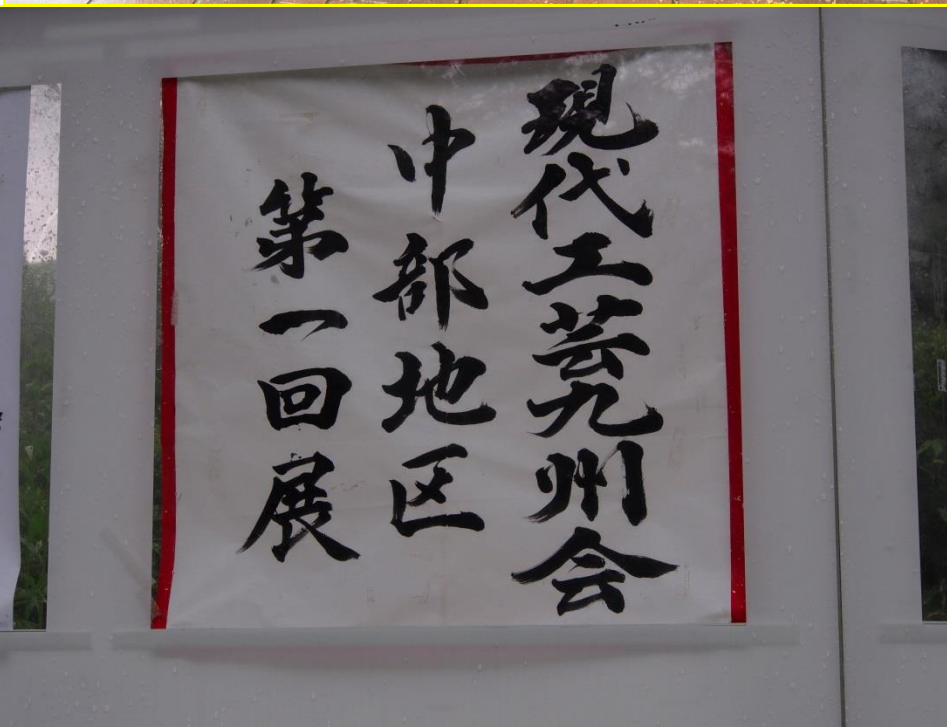 現代工芸九州会
中部地区
第一回展